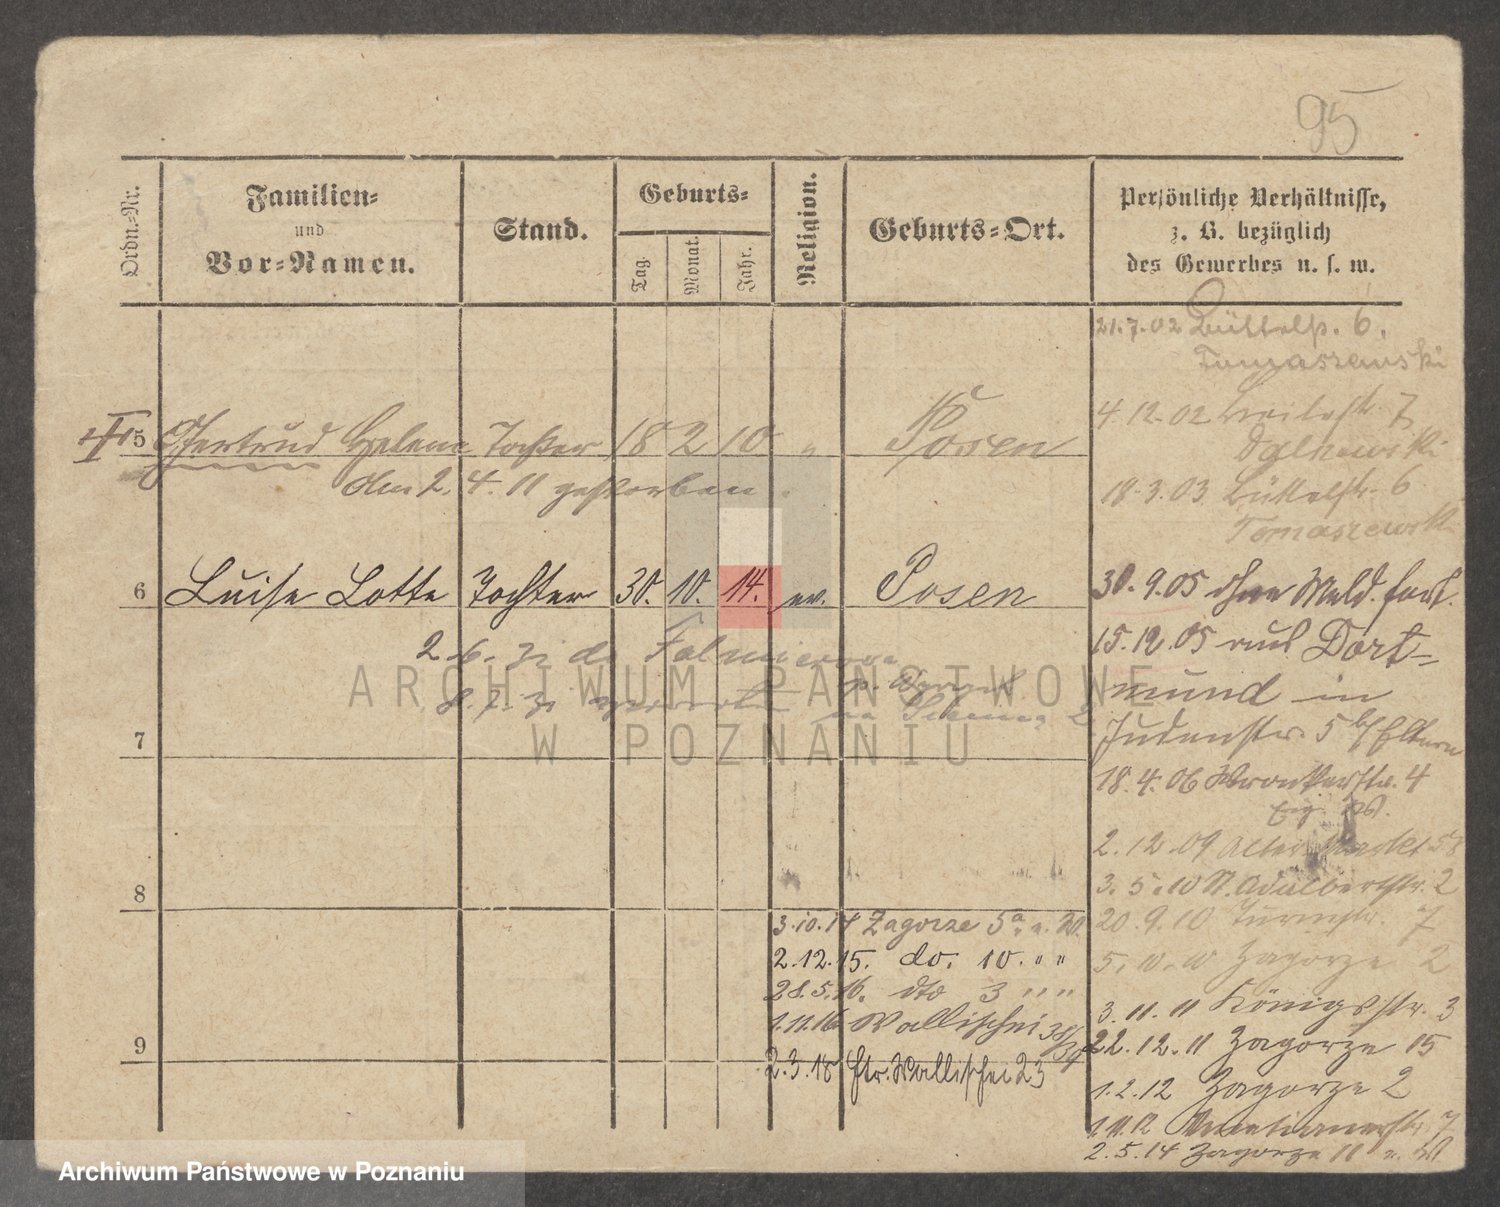 95
Ordn.-Nr.
Familien-
und
Vor-Namen.
Stand.
Geburts-
Tag.
Monat.
Jahr.
Religion.
Geburts-Ort.
Persönliche Verhältnisse,
z. B. bezüglich
des Gewerbes u. s. w.
21.7.02 Büttelstr. 6.
Tomaszewski
4.12.02 Breitestr. 7
5 Gertrud Helene Tochter 18 2 10 " Posen
den 2. 4. 11 gestorben.
18.3.03 Büttelstr. 6
Tomaszewski
6 Luise Lotte Tochter 30. 10. 14. ev. Posen
30.9.05 ohne Meld. fort.
15.12.05 aus Dort-
mund in
Judenstr. 5 b/ Eltern
2.6.
7
18.4.06 Wronkerstr. 4
2.12.09 Alter Markt 58
8
3.5.10 St. Adalbertstr. 2
20.9.10 Turmstr. 7
5.10.10 Zagorze 2
3.11.11 Königsstr. 3
22.12.11 Zagorze 15
1.2.12 Zagorze 2
1.11.12 Venetianerstr. 7
2.5.14 Zagorze 11
3.10.14 Zagorze 5a
2.12.15. do. 10. " "
28.5.16. dto 3 " "
1.11.16 Wallischei 38/39
9
2.3.18 Str. Wallischei 23
ARCHIWUM PAŃSTWOWE
W POZNANIU
Archiwum Państwowe w Poznaniu